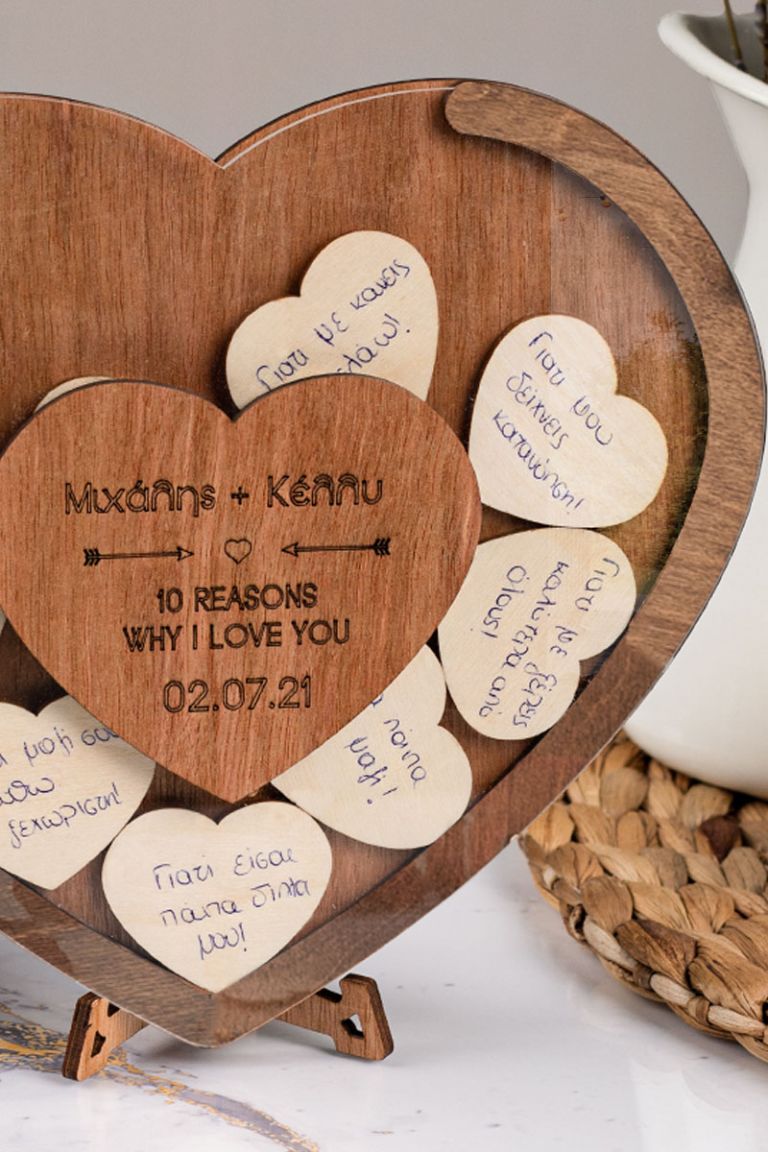 Γιατί με κάνεις
γελάω!
Γιατί μου
δείχνεις
κατανόηση!
Μιχάλης + Κέλλυ
10 REASONS
WHY I LOVE YOU
02.07.21
Γιατί με ξέρεις
καλύτερα από
όλους!
πάντα
μαζί!
μαζί σου
ξεχωριστή!
Γιατί είσαι
πάντα δίπλα
μου!